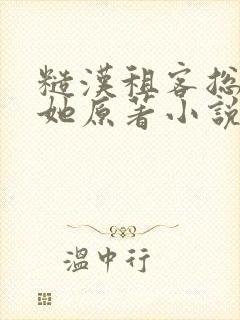 糙漢租客挖
她原著小說
溫中行